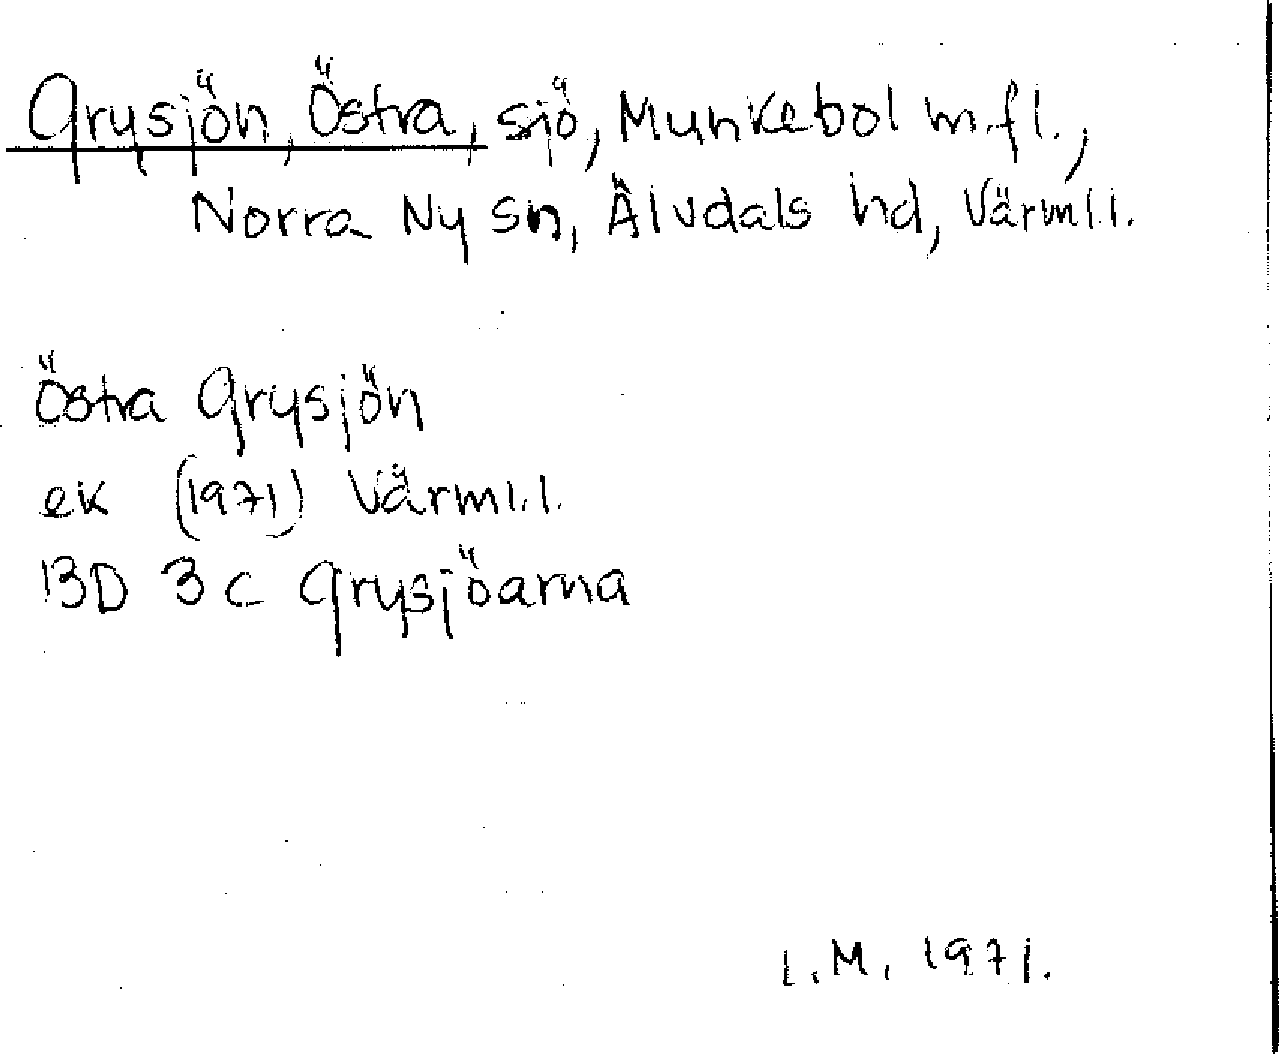 Grysjön, Östra, sjö, Munkebol m.fl.,
Norra Ny sn, Älvdals hd, Värml.l.
Östra Grysjön
ek (1971) Värml.l.
13D 3c Grysjöarna
I.M. 1971.